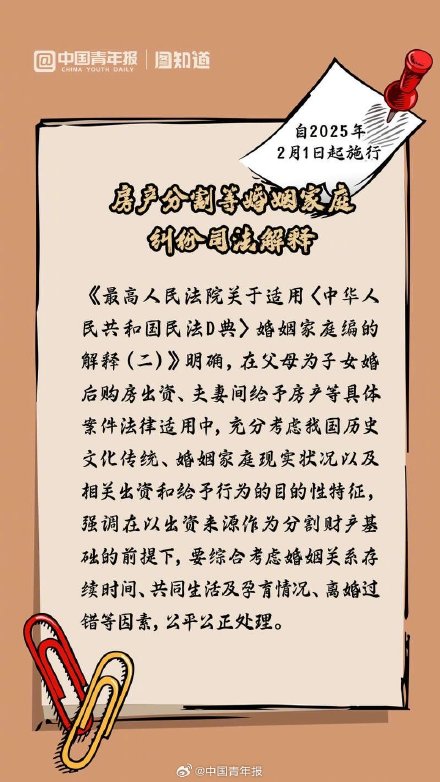 @中国青年报 | 图知道
CHINA YOUTH DAILY
自2025年
2月1日起施行
房产分割等婚姻家庭
纠纷司法解释
《最高人民法院关于适用〈中华人
民共和国民法D典〉婚姻家庭编的
解释(二)》明确,在父母为子女婚
后购房出资、夫妻间给予房产等具体
案件法律适用中,充分考虑我国历史
文化传统、婚姻家庭现实状况以及
相关出资和给予行为的目的性特征,
强调在以出资来源作为分割财产基
础的前提下,要综合考虑婚姻关系存
续时间、共同生活及孕育情况、离婚过
错等因素,公平公正处理。
@中国青年报